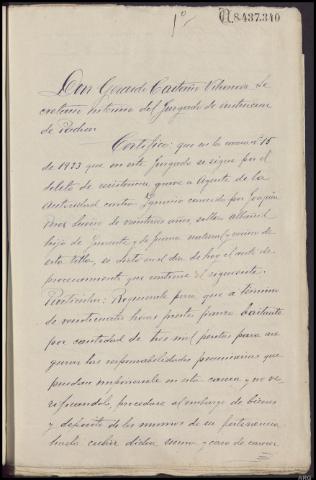 1º
A.8.437.340
Don Gerardo Cardeño Villanueva Se
cretario interino del Juzgado de instruccion
de Padron
Certifico: que en la causa nº 15
de 1923 que en este Juzgado se sigue por el
delito de resistencia grave a Agente de la
Autoridad contra Ignacio conocido por Joaquin
de veintidos años, soltero albañil
hijo de y de natural y vecino de
esta villa, se dictó en el dia de hoy el auto de
procesamiento que contiene el siguiente:
Particular: Requierase para que a termino
de veinticuatro horas preste fianza bastante
por cantidad de tres mil pesetas para ase
gurar las responsabilidades pecuniarias que
puedan imponersele en esta causa y no ve
rificandolo, procedase al embargo de bienes
y depósito de los mismos de su pertenencia
hasta cubrir dicha suma y caso de carecer